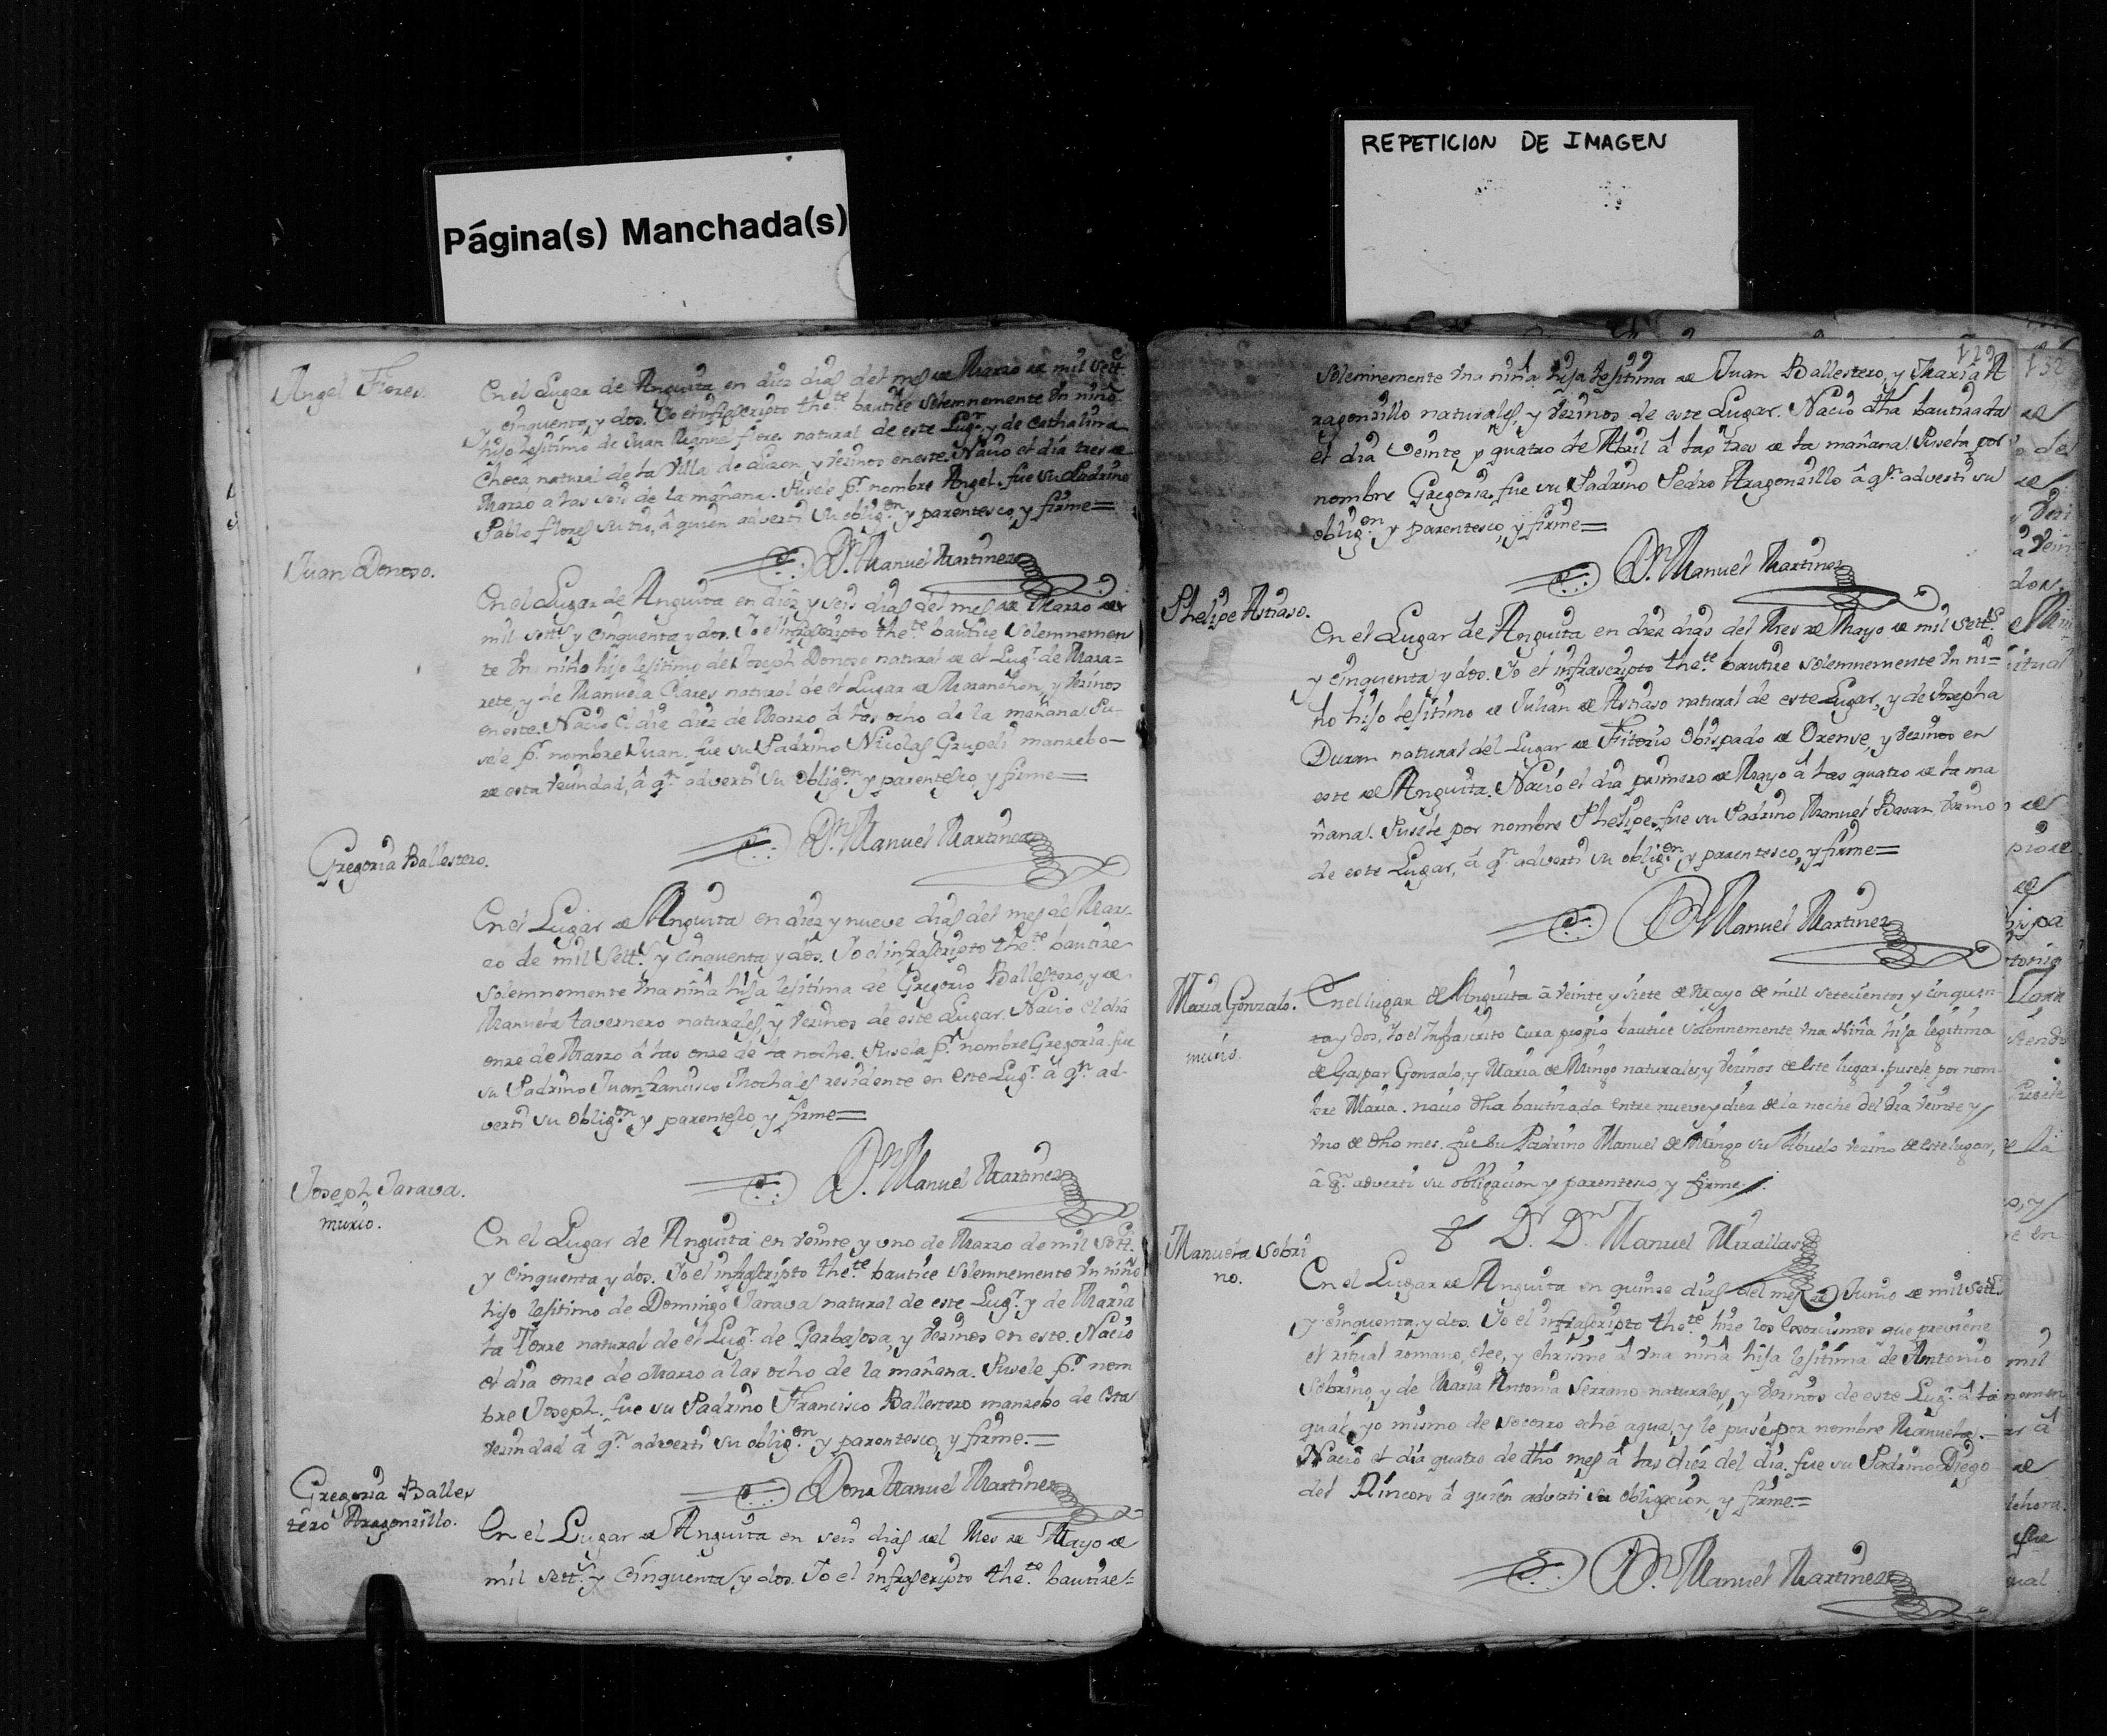 Página(s) Manchada(s)
REPETICION DE IMAGEN
Angel Flores.
En el Lugar de Anguita en diez dias del mes de Marzo de mil sett.s
y cinquenta, y dos. Yo el infrascripto the.te bautice solemnemente Vn niño
hijo lexitimo de Juan Manuel flores natural de este Lug.r y de Cathalina
Checa natural de la Villa de Luzon, y vezinos en este. Nacio el dia tres de
Marzo a las seis de la mañana. Pusele p.r nombre Angel. fue su Padrino
Pablo flores su tio, â quien adverti su oblig.on y parentesco, y firme=
D.n Manuel Martinez
Juan Donoso.
En el Lugar de Anguita en diez y seis dias del mes de Marzo de
mil sett.s y cinquenta y dos. Yo el infrascripto the.te bautice solemnemen
te Vn niño hijo lexitimo de Joseph Donoso natural de el Lug.r de Maza=
rete, y de Manuela Clares natural de el Lugar de Maranchon, y vezinos
en este. Nacio el dia diez de Marzo â las ocho de la mañana. Pu-
sele p.r nombre Juan. fue su Padrino Nicolas manzebo
de esta vezindad, â q.n adverti su oblig.on y parentesco, y firme=
D.n Manuel Martinez
Gregoria Ballestero.
En el Lugar de Anguita en diez y nueve dias del mes de Mar-
zo de mil sett.s y cinquenta y dos. Yo el infrascripto the.te bautize
solemnemente Vna niña hija lexitima de Gregorio Ballestero, y de
Manuela tavernero naturales, y vezinos de este Lugar. Nacio el dia
onze de Marzo â las onze de la noche. Pusela p.r nombre Gregoria. fue
su Padrino Juan francisco Mochales residente en este Lug.r â q.n ad-
verti su oblig.on y parentesco, y firme=
D.n Manuel Martinez
Joseph Tarava.
murio.
En el Lugar de Anguita en veinte y uno de Marzo de mil sett.s
y cinquenta y dos. Yo el infrascripto the.te bautice solemnemente Vn niño
hijo lexitimo de Domingo Tarava natural de este Lug.r y de Maria
la Torre natural de el Lug.r de Garbajosa, y vezinos en este. Nacio
el dia onze de Marzo a las ocho de la mañana. Pusele p.r nom
bre Joseph. fue su Padrino Francisco Ballestero manzebo de esta
vezindad â q.n adverti su oblig.on y parentesco, y firme.=
Don Manuel Martinez
Gregoria Balles
tero Aragonzillo.
En el Lugar de Anguita en seis dias del Mes de Mayo de
mil sett.s y cinquenta, y dos. Yo el infrascripto the.te bautize=
129
132
solemnemente Vna niña hija lexitima de Juan Ballestero, y Maria A
ragonzillo naturales, y vezinos de este Lugar. Nacio dha bautizada
el dia Veinte y quatro de Abril â las tres de la mañana. Pusela por
nombre Gregoria. fue su Padrino Pedro Aragonzillo â q.n adverti su
oblig.on y parentesco, y firme=
D.n Manuel Martinez
Phelipe Atraso.
En el Lugar de Anguita en diez dias del Mes de Mayo de mil sett.s
y cinquenta y dos. Yo el infrascripto the.te bautize solemnemente Vn ni=
ño hijo lexitimo de Julian de Atraso natural de este Lugar, y de Josepha
Duran natural del Lugar de Obispado de Orense, y vezinos en
este de Anguita. Nacio el dia primero de Mayo â las quatro de la ma
ñana. Pusele por nombre Phelipe. fue su Padrino Manuel Bazan vezino
de este Lugar, â q.n adverti su oblig.on y parentesco, y firme=
D.n Manuel Martinez
Maria Gonzalo.
murio.
En el lugar de Anguita â veinte y siete de Mayo de mill setecientos y cinquen-
ta y dos, Yo el Infrascrito Cura propio bautice solemnemente Vna Niña hija legitima
de Gaspar Gonzalo, y Maria de Mingo naturales y vezinos de este lugar. pusele por nom-
bre Maria. nacio dha bautizada entre nueve y diez de la noche del dia veinte y
vno de dho mes. fue su Padrino Manuel de Mingo su Abuelo vezino de este lugar,
â q.n adverti su obligacion y parentesco y firme.
D.r D.n Manuel Mirallas
Manuela Sobri
no.
En el Lugar de Anguita en quinze dias del mes de Junio de mil sett.s
y cinquenta, y dos. Yo el infrascripto the.te hize los exorcismos que previene
el ritual romano, olee, y chrisme â Vna niña hija lexitima de Antonio
Sobrino, y de Maria Antonia Serrano naturales, y vezinos de este Lug.r â la
qual yo mismo de socorro eché agua, y le puse por nombre Manuela.=
Nacio el dia quatro de dho mes â las diez del dia. fue su Padrino Diego
del Rincon â quien adverti su obligacion, y firme.=
D.n Manuel Martinez